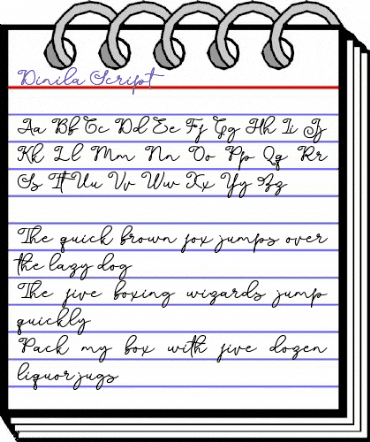 Dinila Script
Aa Bb Cc Dd Ee Ff Gg Hh Ii Jj
Kk Ll Mm Nn Oo Pp Qq Rr
Ss Tt Uu Vv Ww Xx Yy Zz
The quick brown fox jumps over
the lazy dog
The five boxing wizards jump
quickly
Pack my box with five dozen
liquor jugs